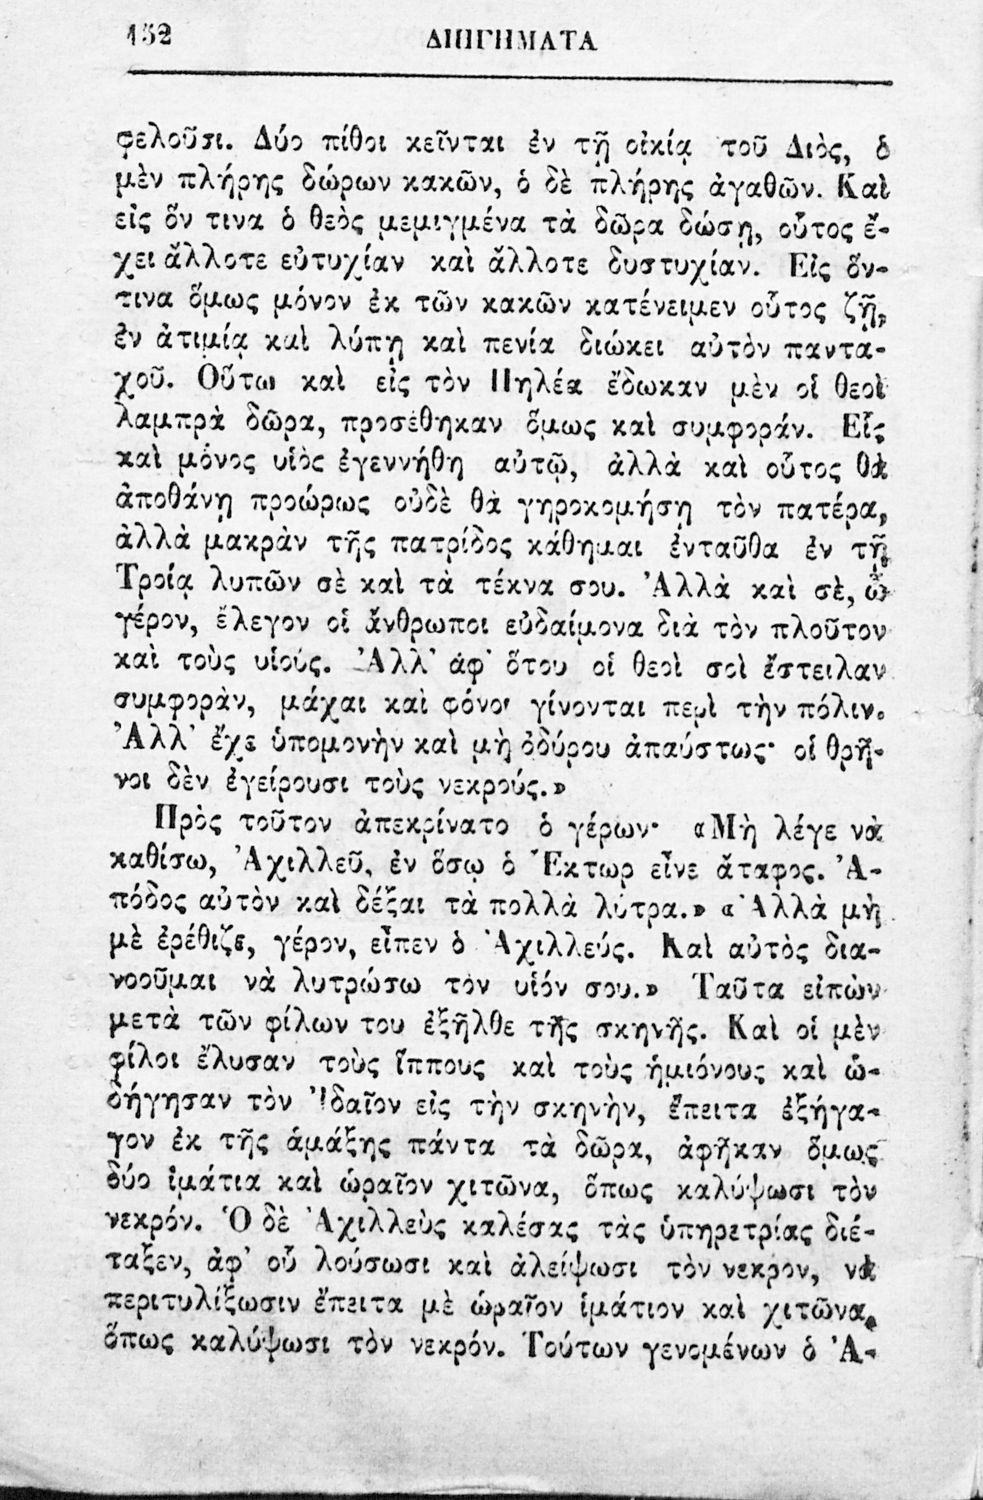 152
ΔΙΗΓΗΜΑΤΑ
φελοῦσι. Δύο πίθοι κεῖνται ἐν τῇ οἰκίᾳ τοῦ Διὸς, ὁ
μὲν πλήρης δώρων κακῶν, ὁ δὲ πλήρης ἀγαθῶν. Καὶ
εἰς ὅν τινα ὁ θεὸς μεμιγμένα τὰ δῶρα δώσῃ, οὗτος ἔ-
χει ἄλλοτε εὐτυχίαν καὶ ἄλλοτε δυστυχίαν. Εἰς ὅν-
τινα ὅμως μόνον ἐκ τῶν κακῶν κατένειμεν οὗτος ζῇ,
ἐν ἀτιμίᾳ καὶ λύπῃ καὶ πενία διώκει αὐτὸν παντα-
χοῦ. Οὕτω καὶ εἰς τὸν Πηλέα ἔδωκαν μὲν οἱ θεοὶ
λαμπρὰ δῶρα, προσέθηκαν ὅμως καὶ συμφοράν. Εἷς
καὶ μόνος υἱὸς ἐγεννήθη αὐτῷ, ἀλλὰ καὶ οὗτος θὰ
ἀποθάνῃ προώρως οὐδὲ θὰ γηροκομήσῃ τὸν πατέρα,
ἀλλὰ μακρὰν τῆς πατρίδος κάθημαι ἐνταῦθα ἐν τῇ
Τροίᾳ λυπῶν σὲ καὶ τὰ τέκνα σου. Ἀλλὰ καὶ σὲ, ὦ
γέρον, ἔλεγον οἱ ἄνθρωποι εὐδαίμονα διὰ τὸν πλοῦτον
καὶ τοὺς υἱούς. Ἀλλ' ἀφ' ὅτου οἱ θεοὶ σοὶ ἔστειλαν
συμφορὰν, μάχαι καὶ φόνοι γίνονται περὶ τὴν πόλιν.
Ἀλλ' ἔχε ὑπομονὴν καὶ μὴ ὀδύρου ἀπαύστως· οἱ θρῆ-
νοι δὲν ἐγείρουσι τοὺς νεκρούς.»
Πρὸς τοῦτον ἀπεκρίνατο ὁ γέρων· «Μὴ λέγε νὰ
καθίσω, Ἀχιλλεῦ, ἐν ὅσῳ ὁ Ἕκτωρ εἶνε ἄταφος. Ἀ-
πόδος αὐτὸν καὶ δέξαι τὰ πολλὰ λύτρα.» «Ἀλλὰ μὴ
μὲ ἐρέθιζε, γέρον, εἶπεν ὁ Ἀχιλλεύς. Καὶ αὐτὸς δια-
νοοῦμαι νὰ λυτρώσω τὸν υἱόν σου.» Ταῦτα εἰπὼν
μετὰ τῶν φίλων του ἐξῆλθε τῆς σκηνῆς. Καὶ οἱ μὲν
φίλοι ἔλυσαν τοὺς ἵππους καὶ τοὺς ἡμιόνους καὶ ὡ-
δήγησαν τὸν Ἰδαῖον εἰς τὴν σκηνὴν, ἔπειτα ἐξήγα-
γον ἐκ τῆς ἁμάξης πάντα τὰ δῶρα, ἀφῆκαν ὅμως
δύο ἱμάτια καὶ ὡραῖον χιτῶνα, ὅπως καλύψωσι τὸν
νεκρόν. Ὁ δὲ Ἀχιλλεὺς καλέσας τὰς ὑπηρετρίας διέ-
ταξεν, ἀφ' οὗ λούσωσι καὶ ἀλείψωσι τὸν νεκρὸν, νὰ
περιτυλίξωσιν ἔπειτα μὲ ὡραῖον ἱμάτιον καὶ χιτῶνα,
ὅπως καλύψωσι τὸν νεκρόν. Τούτων γενομένων ὁ Ἀ-